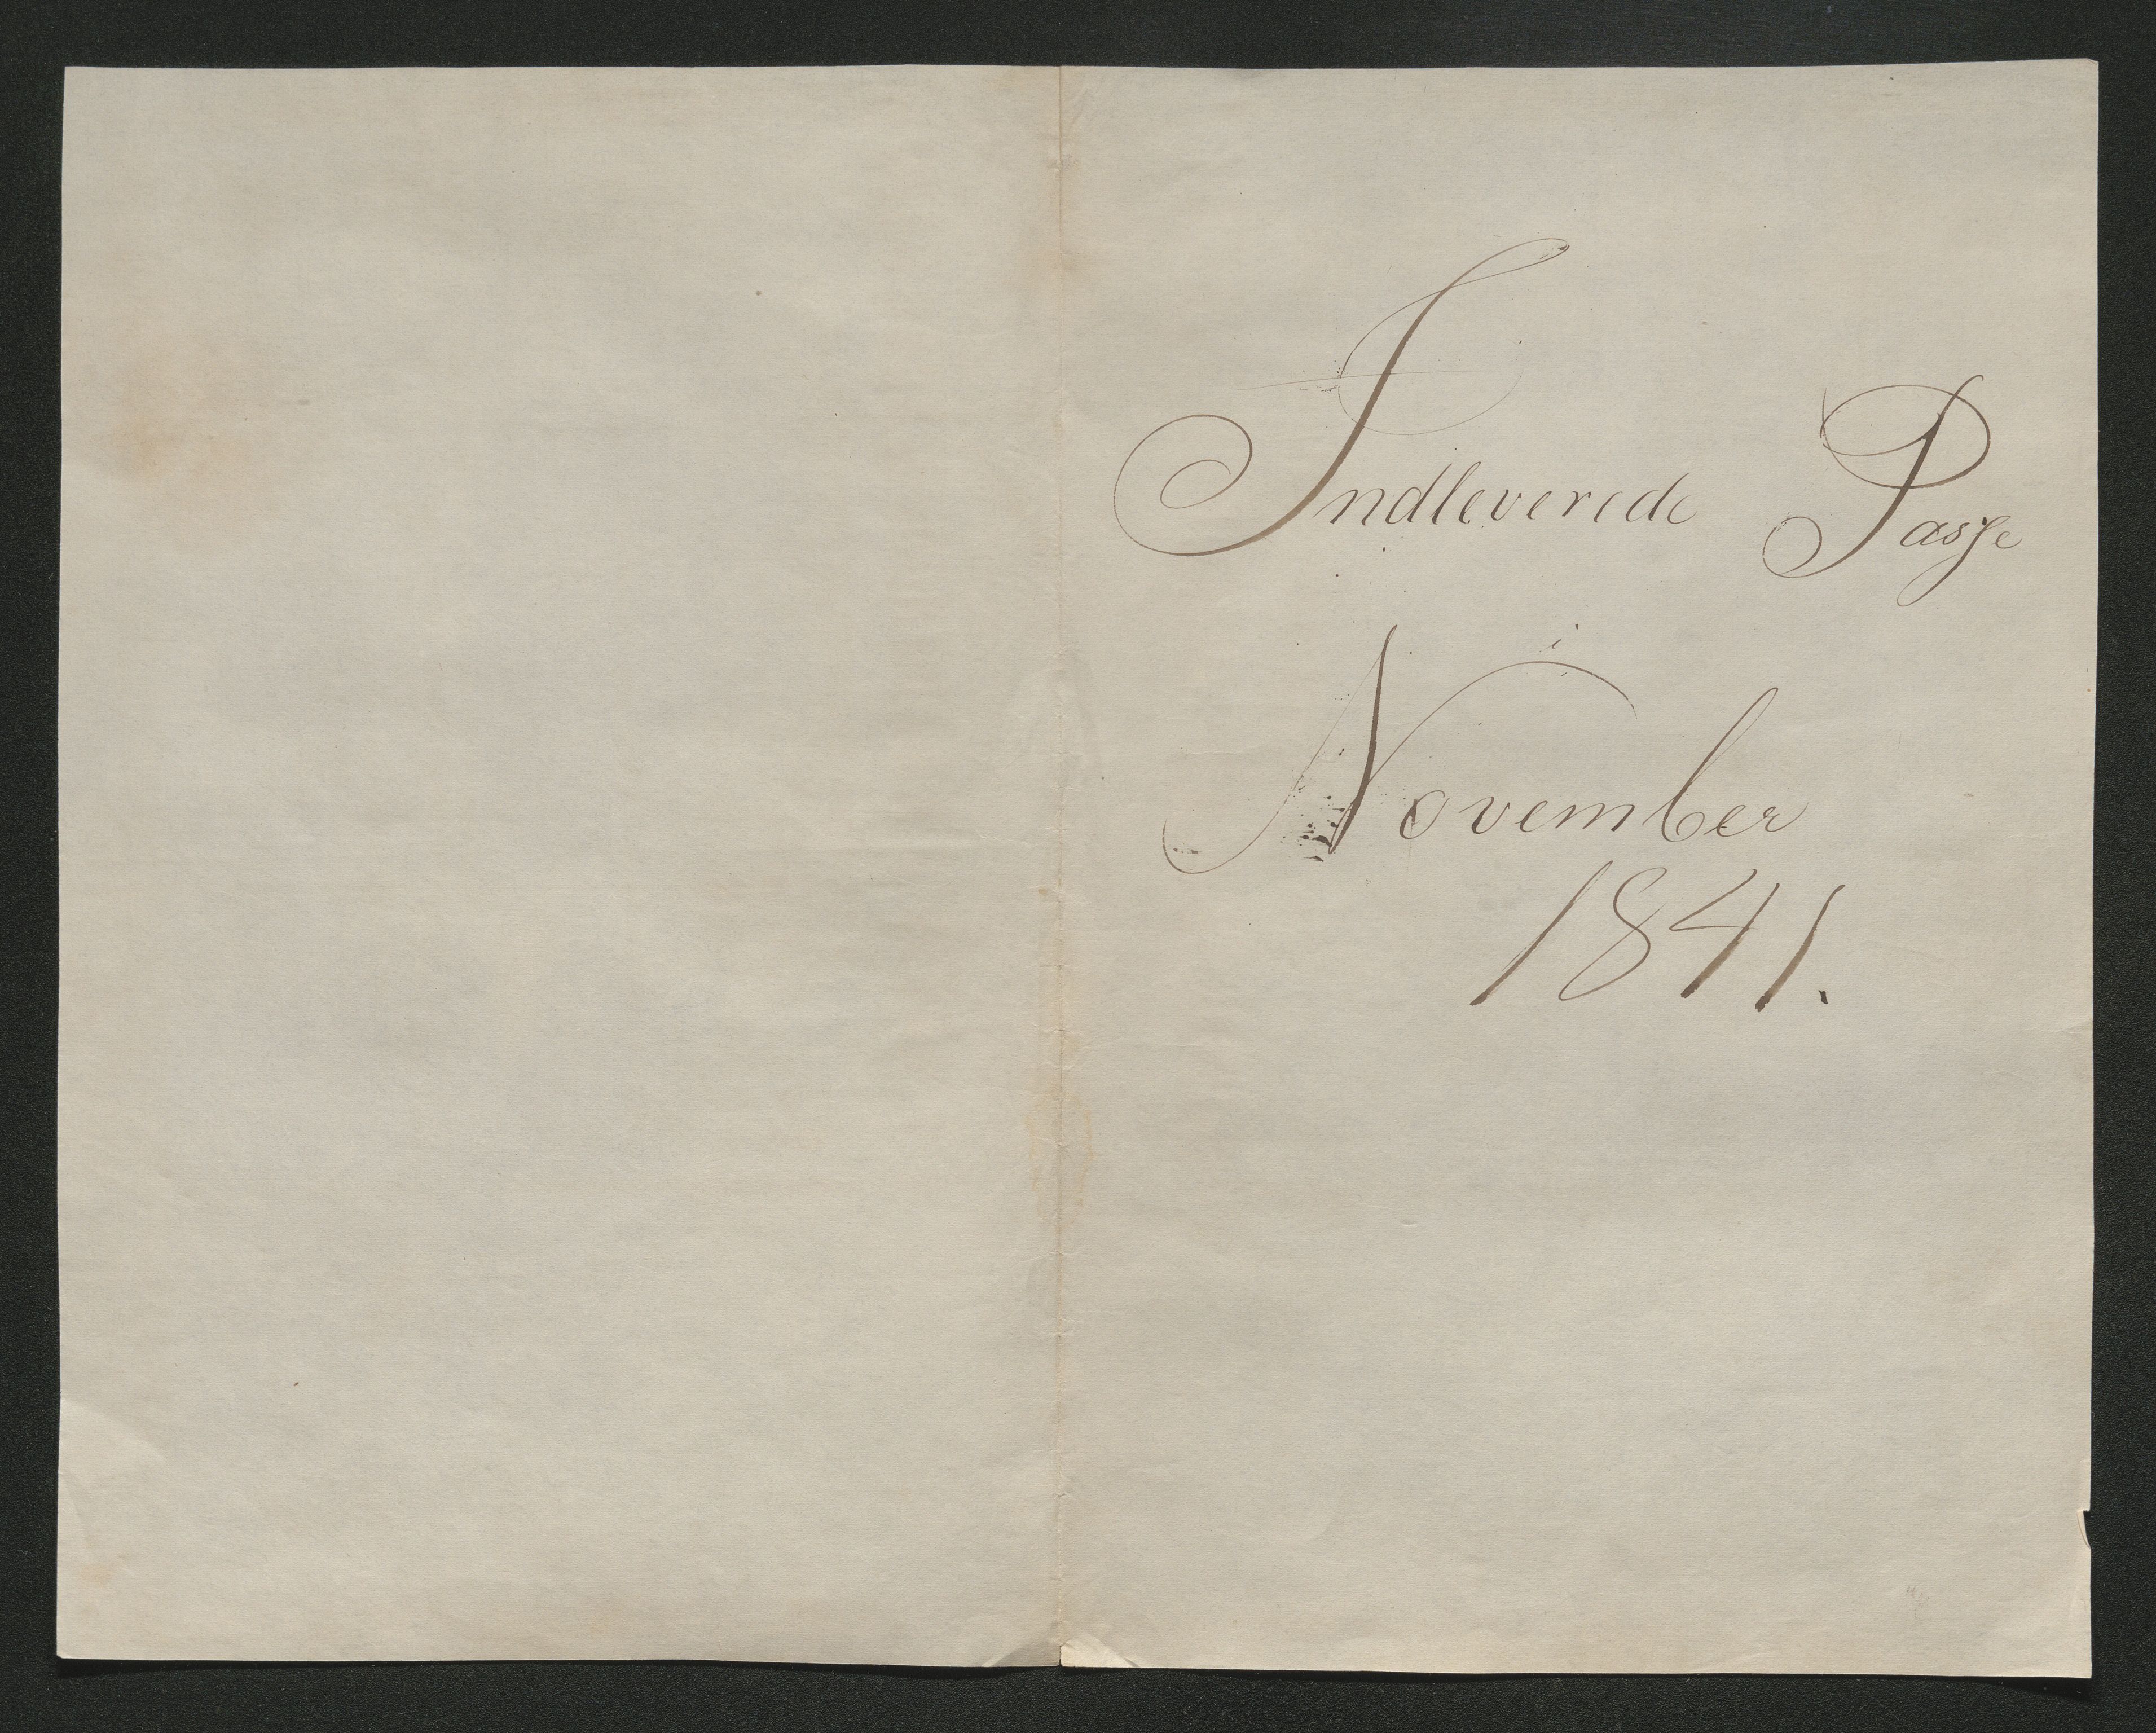 Indleverede Passe
i
November
1841.